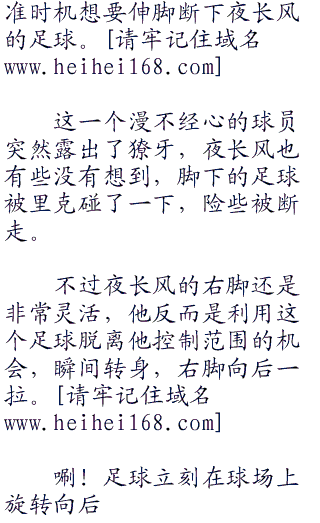 准时机想要伸脚断下夜长风
的足球。[请牢记住域名
www.heihei168.com]
这一个漫不经心的球员
突然露出了獠牙，夜长风也
有些没有想到，脚下的足球
被里克碰了一下，险些被断
走。
不过夜长风的右脚还是
非常灵活，他反而是利用这
个足球脱离他控制范围的机
会，瞬间转身，右脚向后一
拉。[请牢记住域名
www.heihei168.com]
唰！足球立刻在球场上
旋转向后